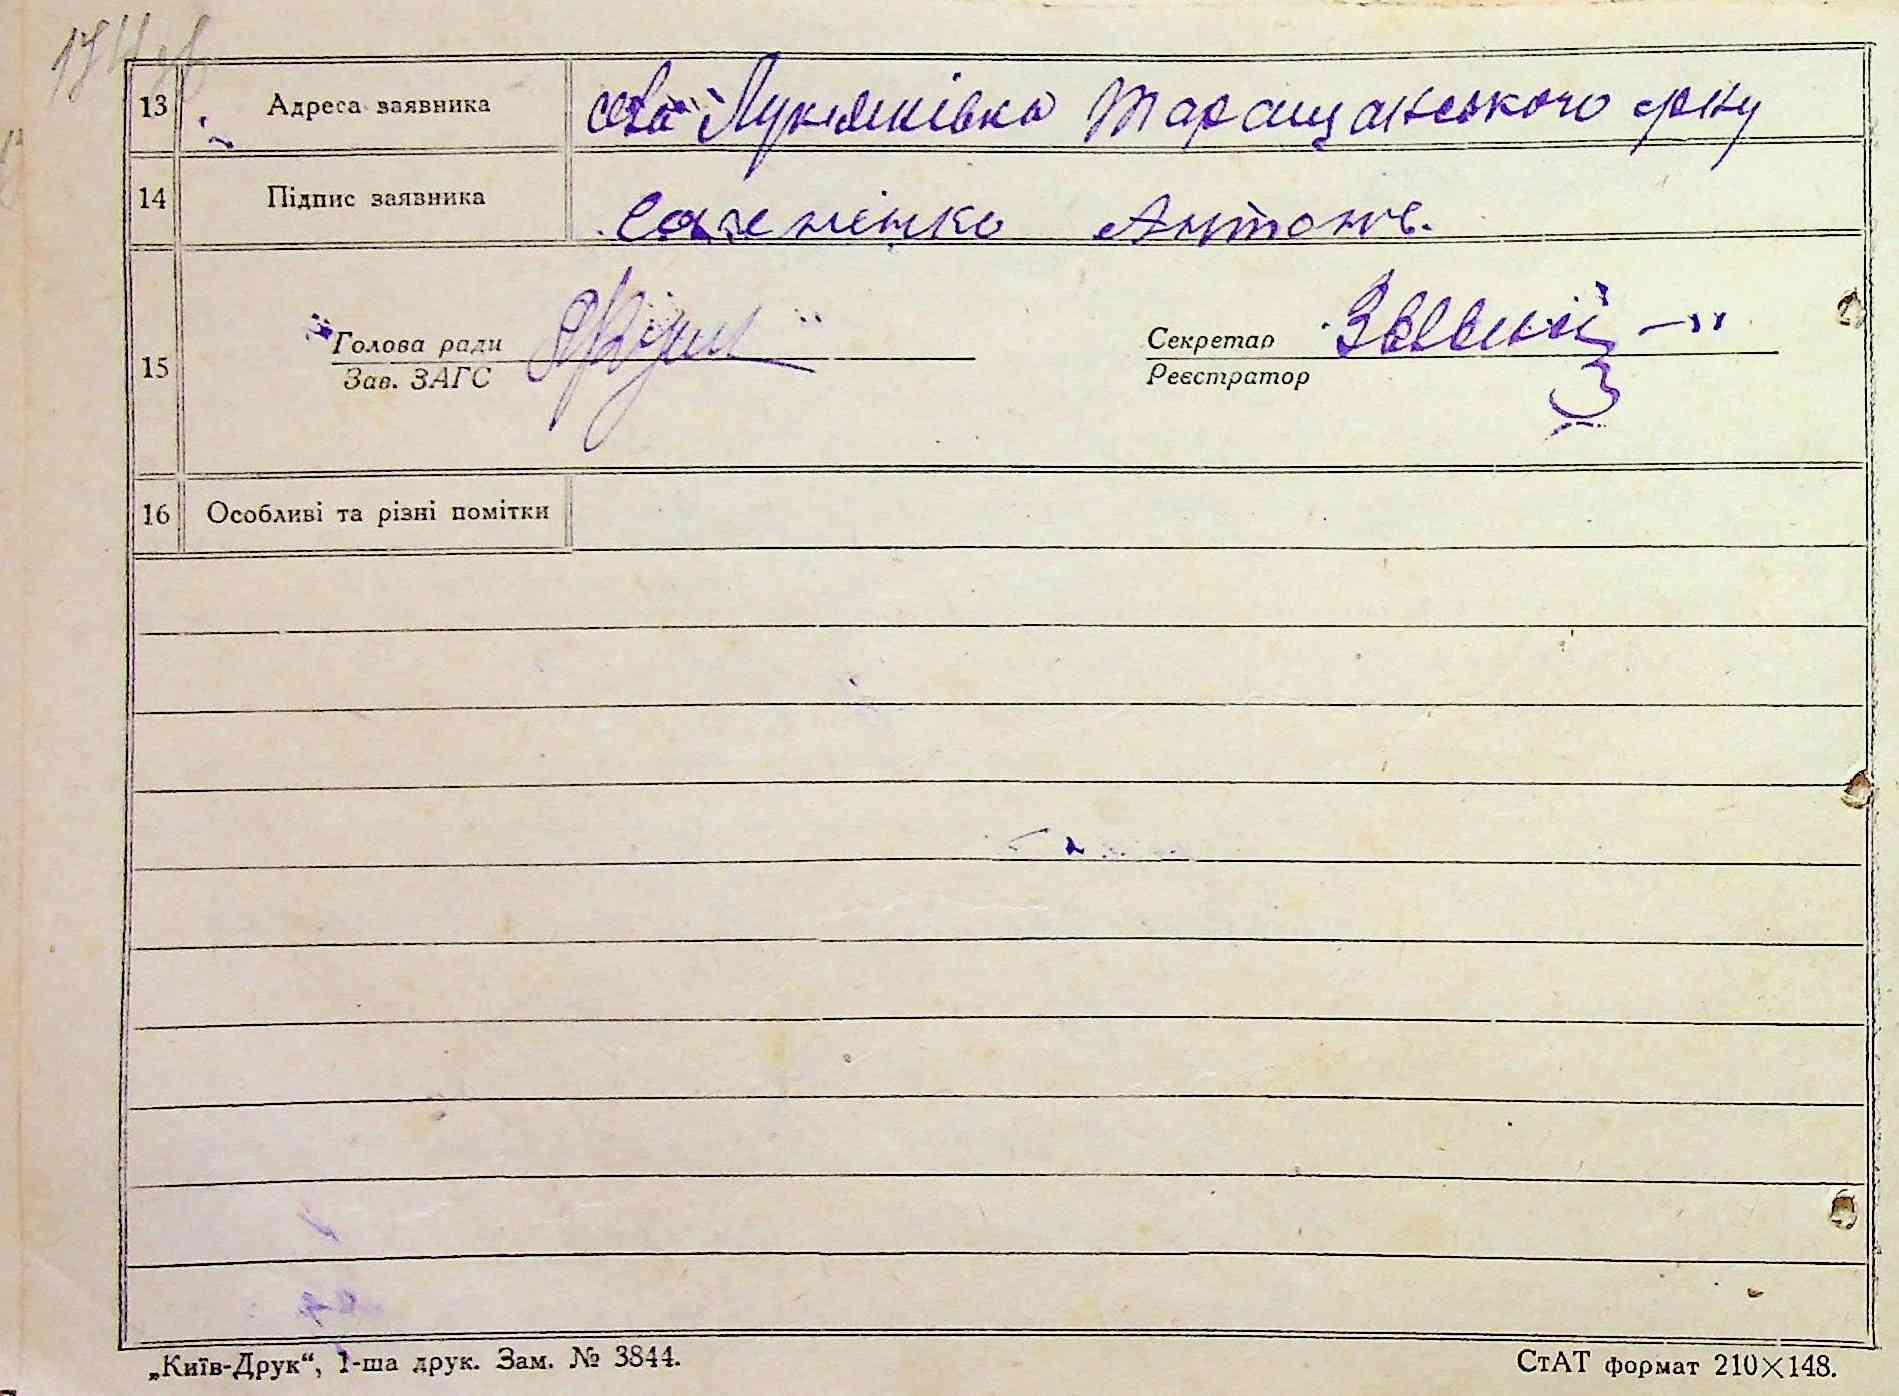 13 Адреса заявника села Лукянівка Таращанського р-ну
14 Підпис заявника Антон
15
Голова ради Секретар
Зав. ЗАГС Реєстратор
16 Особливі та різні помітки
„Київ-Друк“, 1-ша друк. Зам. № 3844. СтАТ формат 210×148.